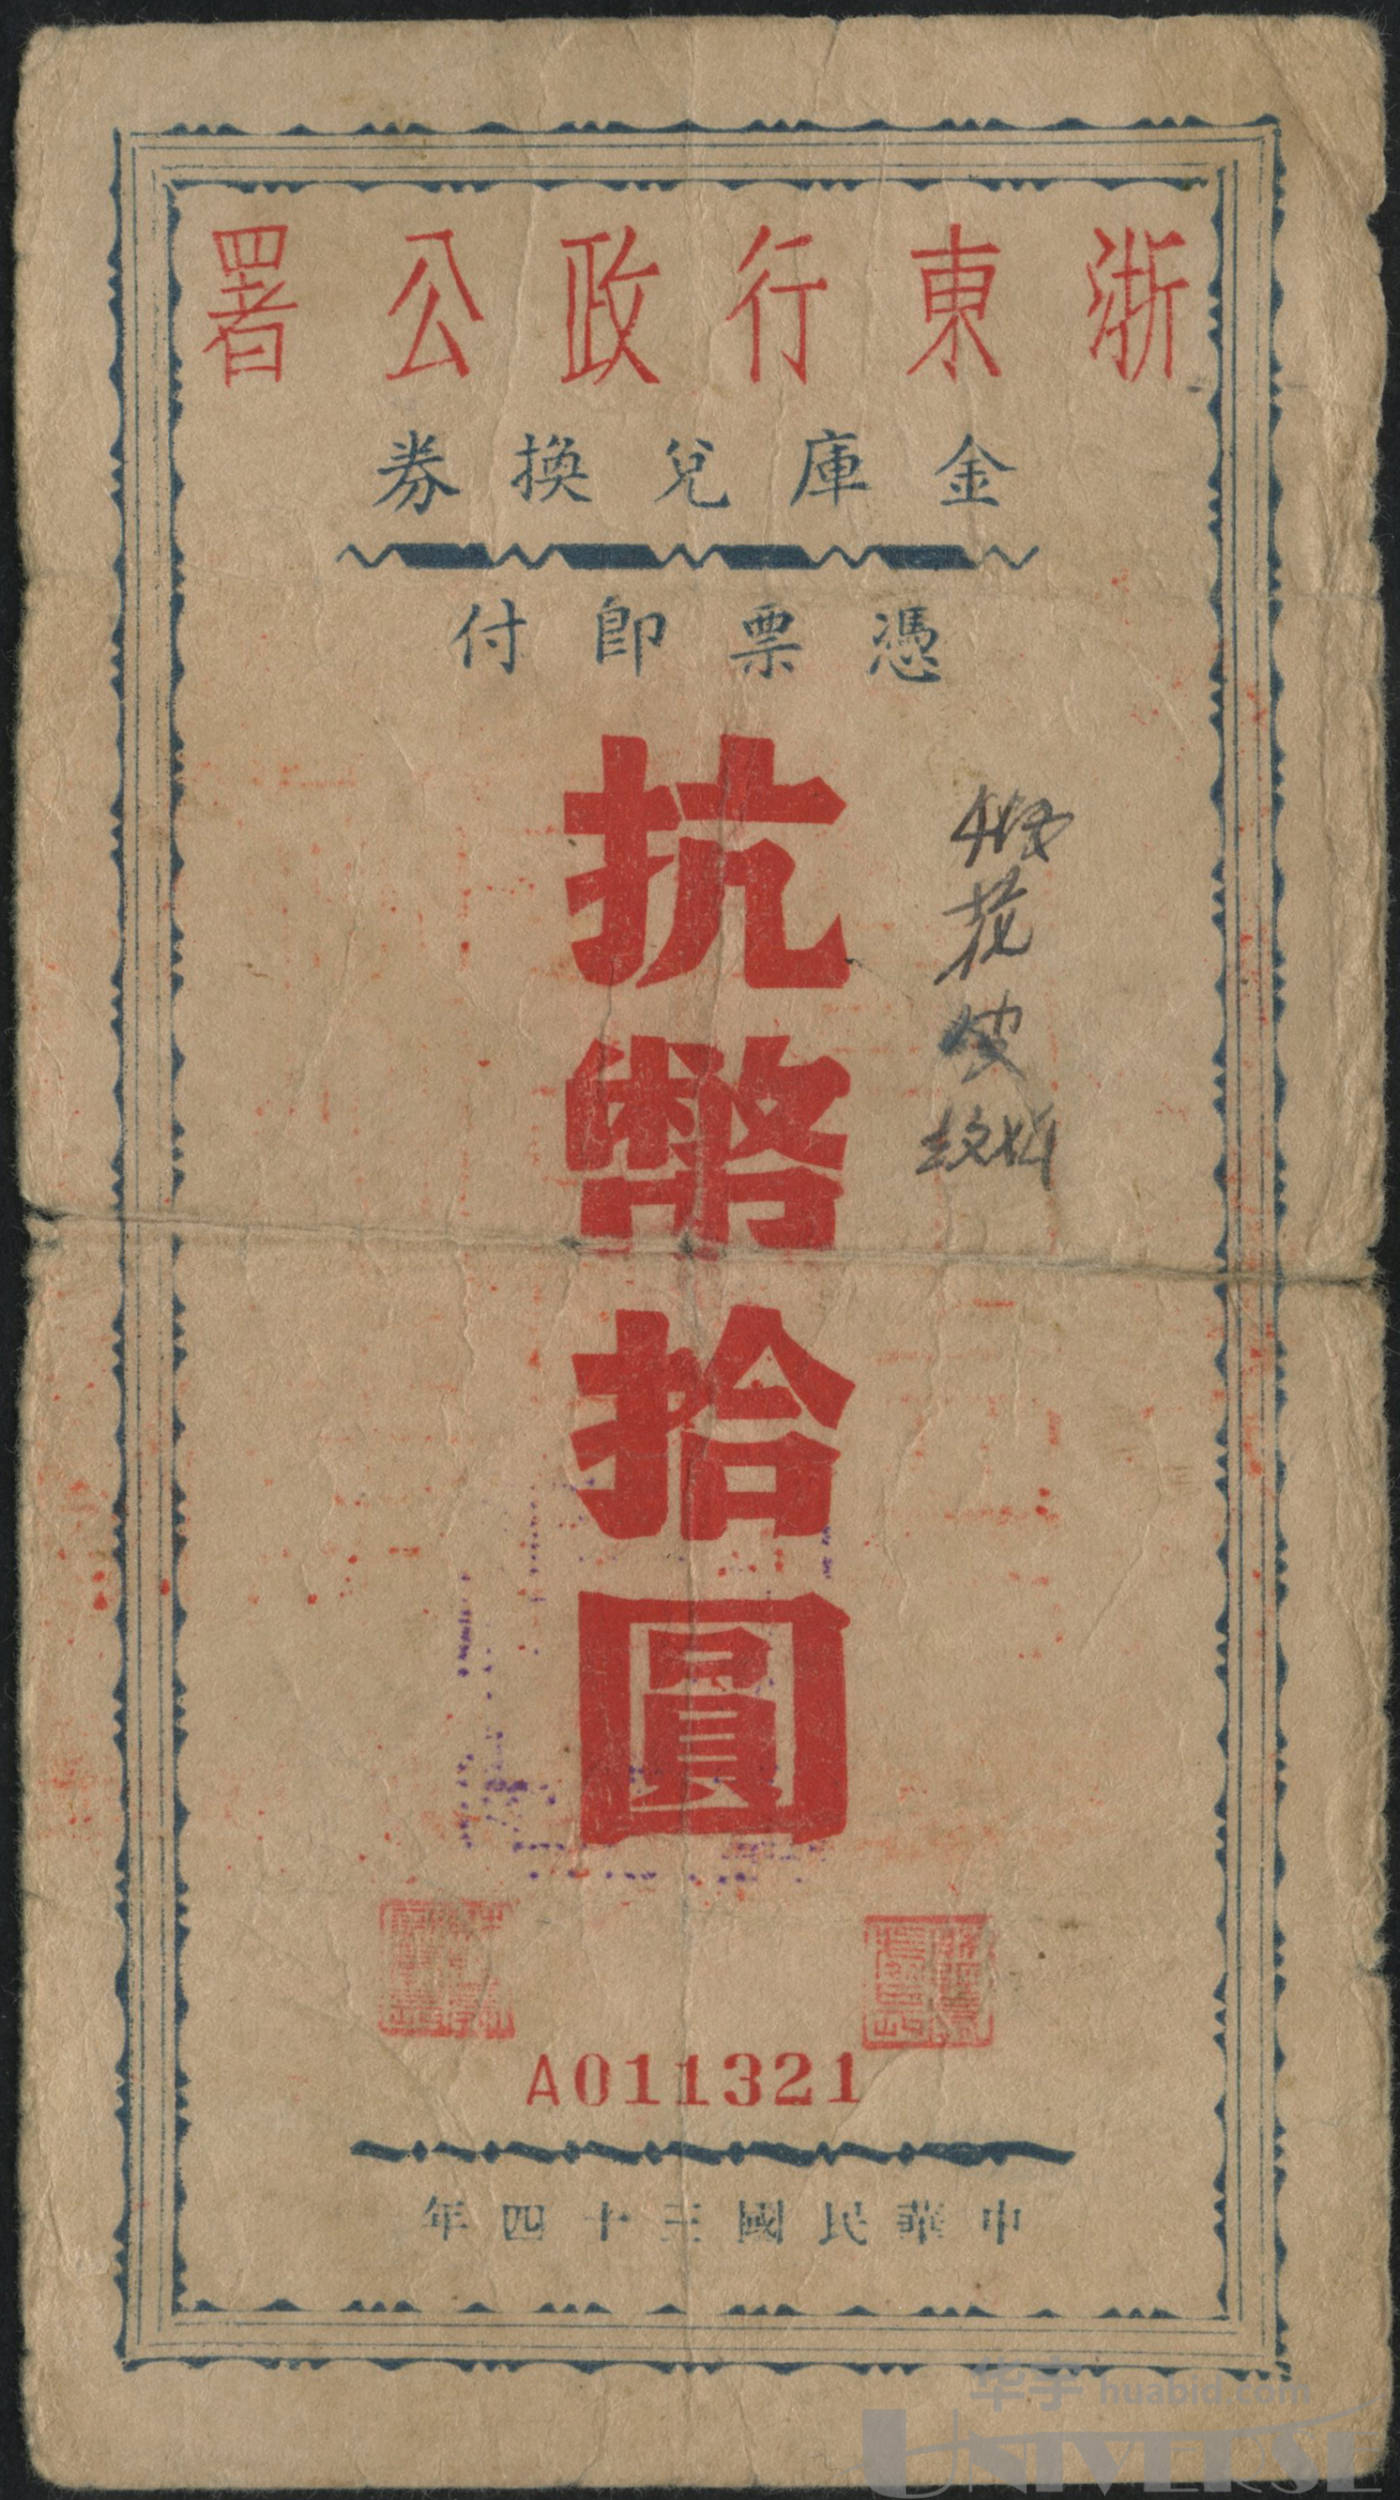 浙東行政公署
金庫兌換券
憑票即付
抗幣拾圓
A011321
中華民國三十四年
华宇 huabid.com
UNIVERSE